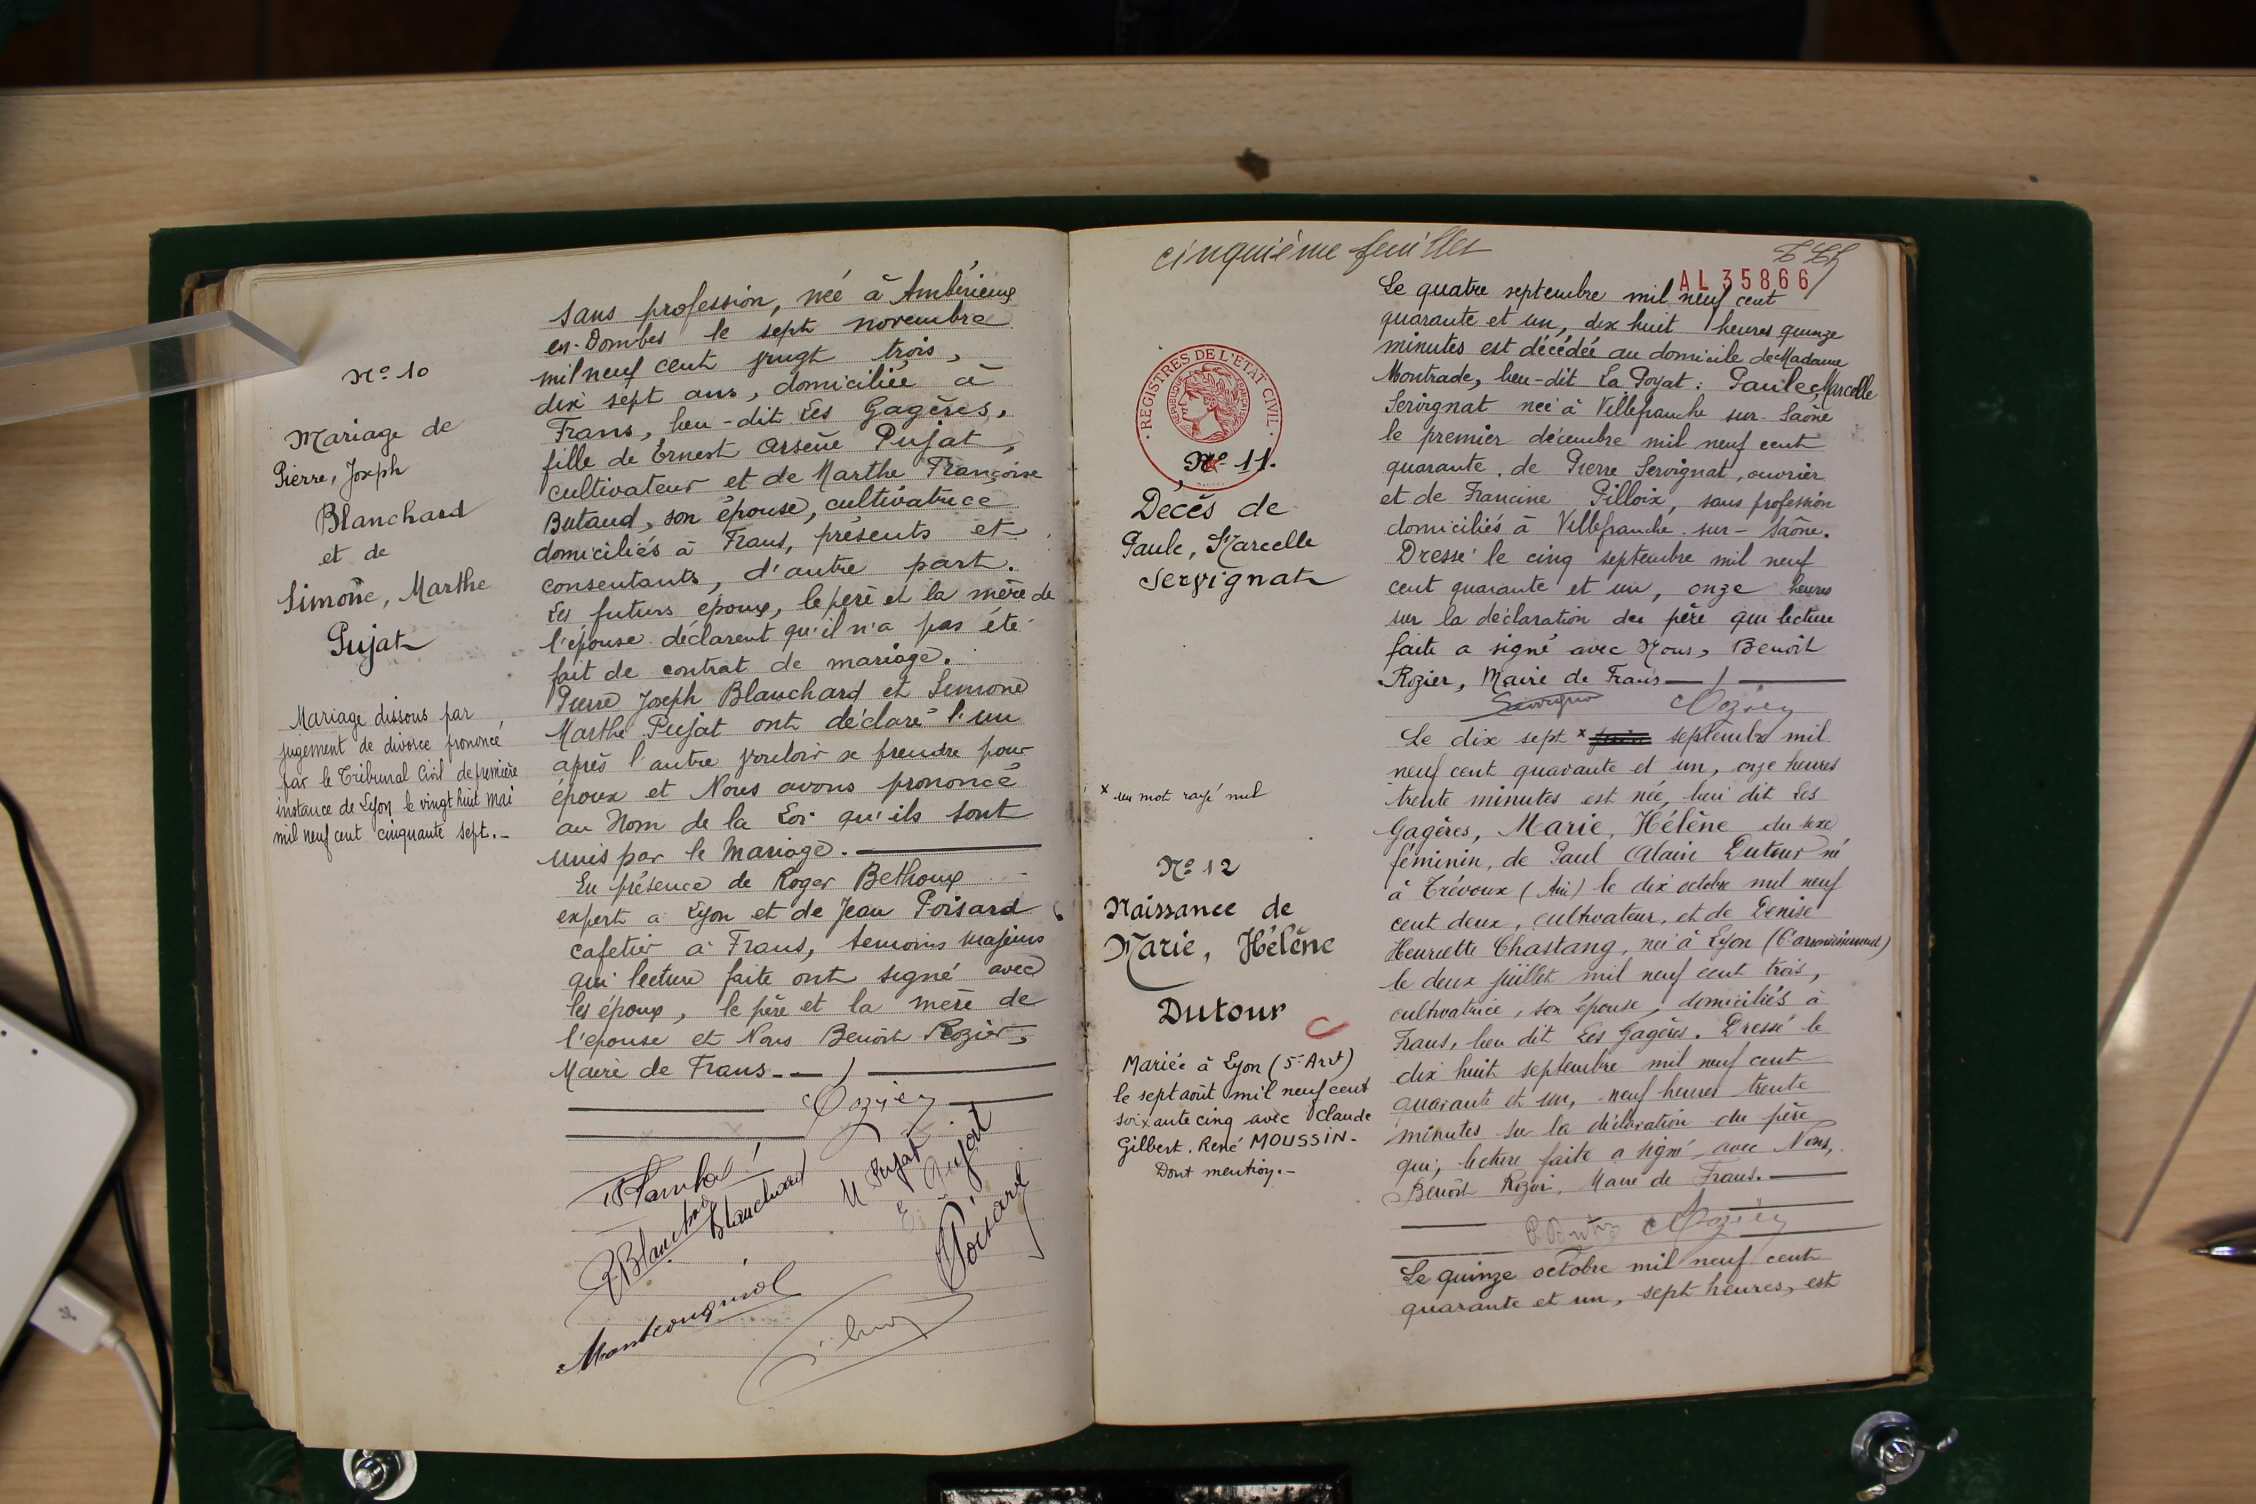 N° 10
Mariage de
Pierre, Joseph
Blanchard
et de
Simone, Marthe
Pujat
Mariage dissous par
jugement de divorce prononcé
par le Tribunal Civil de première
instance de Lyon le vingt huit mai
mil neuf cent cinquante sept.-
sans profession, née à Ambérieux
en-Dombes le sept novembre
mil neuf cent vingt trois,
dix sept ans, domiciliée à
Frans, lieu-dit Les Gagères,
fille de Ernest Arsène Pujat,
cultivateur et de Marthe Françoise
Butaud, son épouse, cultivatrice
domiciliés à Frans, présents et
consentants, d'autre part.
Les futurs époux, le père et la mère de
l'épouse déclarent qu'il n'a pas été
fait de contrat de mariage.
Pierre Joseph Blanchard et Simone
Marthe Pujat ont déclaré l'un
après l'autre vouloir se prendre pour
époux et Nous avons prononcé
au Nom de la Loi qu'ils sont
unis par le Mariage.
En présence de Roger Bethoux
expert à Lyon et de Jean Poisard
cafetier à Frans, témoins majeurs
qui lecture faite ont signé avec
les époux, le père et la mère de
l'épouse et Nous Benoît Rozier,
Maire de Frans.
Rozier
Blanchard
M Pujat
E Pujat
Blanchard
Poisard
cinquième feuillet
AL 35866
REGISTRES DE L'ETAT CIVIL
N° 11.
Décès de
Paule, Marcelle
Servignat
Le quatre septembre mil neuf cent
quarante et un, dix huit heures quinze
minutes est décédée au domicile de Madame
Montrade, lieu-dit La Poyat: Paule, Marcelle
Servignat née à Villefranche sur-Saône
le premier décembre mil neuf cent
quarante, de Pierre Servignat, ouvrier
et de Francine Pilloix, sans profession
domiciliés à Villefranche-sur-Saône.
Dressé le cinq septembre mil neuf
cent quarante et un, onze heures
sur la déclaration du père qui lecture
faite a signé avec Nous, Benoît
Rozier, Maire de Frans
Servignat Rozier
x un mot rayé nul
N° 12
Naissance de
Marie, Hélène
Dutour
Mariée à Lyon (5e Arrt)
le sept août mil neuf cent
soixante cinq avec Claude
Gilbert, René MOUSSIN-
Dont mention.-
Le dix sept x septembre mil
neuf cent quarante et un, onze heures
trente minutes est née, lieu dit Les
Gagères, Marie, Hélène du sexe
féminin, de Paul Alain Dutour né
à Trévoux (Ain) le dix octobre mil neuf
cent deux, cultivateur, et de Denise
Henriette Chastang, née à Lyon (6 arrondissement)
le deux juillet mil neuf cent trois,
cultivatrice, son épouse, domiciliés à
Frans, lieu dit Les Gagères. Dressé le
dix huit septembre mil neuf cent
quarante et un, neuf heures trente
minutes sur la déclaration du père
qui, lecture faite a signé avec Nous,
Benoît Rozier, Maire de Frans.
Rozier
Le quinze octobre mil neuf cent
quarante et un, sept heures, est